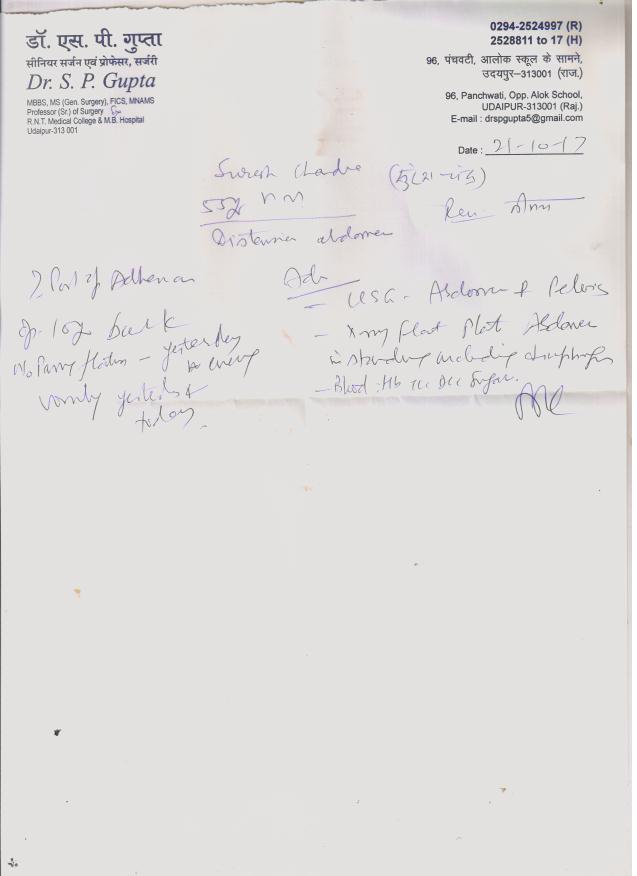 डॉ. एस. पी. गुप्ता
सीनियर सर्जन एवं प्रोफेसर, सर्जरी
Dr. S. P. Gupta
MBBS, MS (Gen. Surgery), FICS, MNAMS
Professor (Sr.) of Surgery
R.N.T. Medical College & M.B. Hospital
Udaipur-313 001
0294-2524997 (R)
2528811 to 17 (H)
96, पंचवटी, आलोक स्कूल के सामने,
उदयपुर–313001 (राज.)
96, Panchwati, Opp. Alok School,
UDAIPUR-313001 (Raj.)
E-mail : drspgupta5@gmail.com
Date : 21-10-17
Suresh Chandra
Distension abdomen
back
yesterday
yesterday &
today
Adv
- USG - Abdomen & Pelvis
- X ray Flat Plate Abdomen
in standing including diaphragm
- Blood : Hb TLC DLC Sugar.